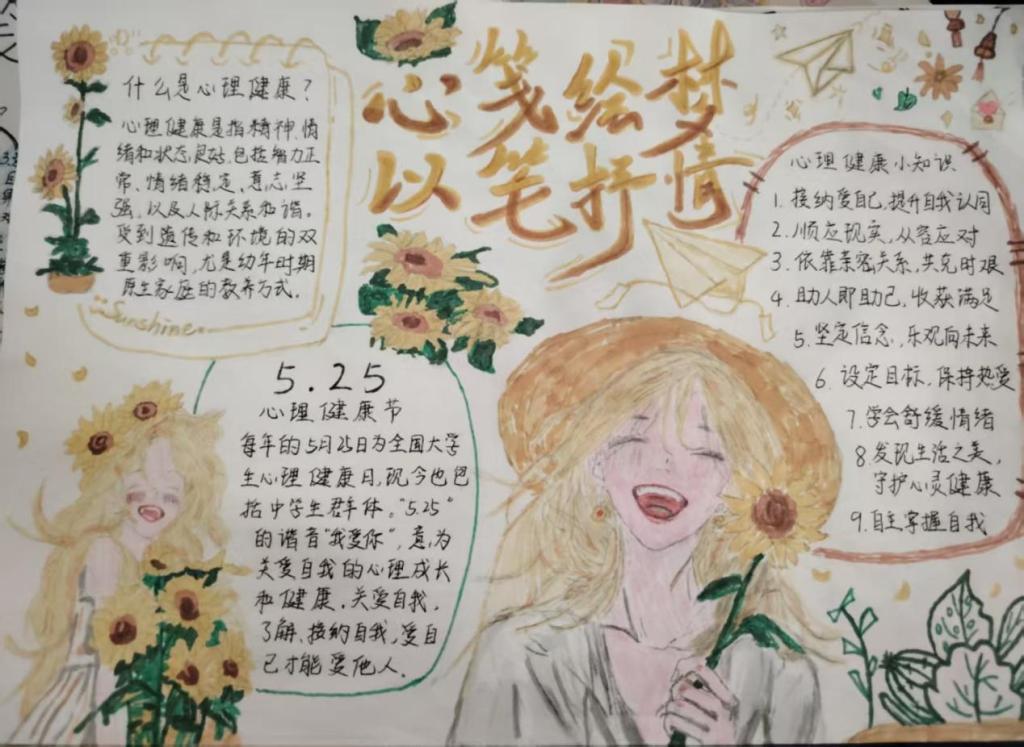 心笺绘梦
以笔抒情
什么是心理健康？
心理健康是指精神、情
绪和状态良好,包括智力正
常、情绪稳定、意志坚
强,以及人际关系和谐。
受到遗传和环境的双
重影响,尤是幼年时期
原生家庭的教养方式.
Sunshine
5.25
心理健康节
每年的5月25日为全国大学
生心理健康日,现今也包
括中学生群体。"5.25"
的谐音"我爱你",意为
关爱自我的心理成长
和健康.关爱自我,
了解、接纳自我,爱自
己才能爱他人.
心理健康小知识
1.接纳爱自己,提升自我认同
2.顺应现实,从容应对
3.依靠亲密关系,共克时艰
4.助人即助己,收获满足
5.坚定信念,乐观向未来
6.设定目标,保持热爱
7.学会舒缓情绪
8.发现生活之美,
守护心灵健康
9.自主掌握自我